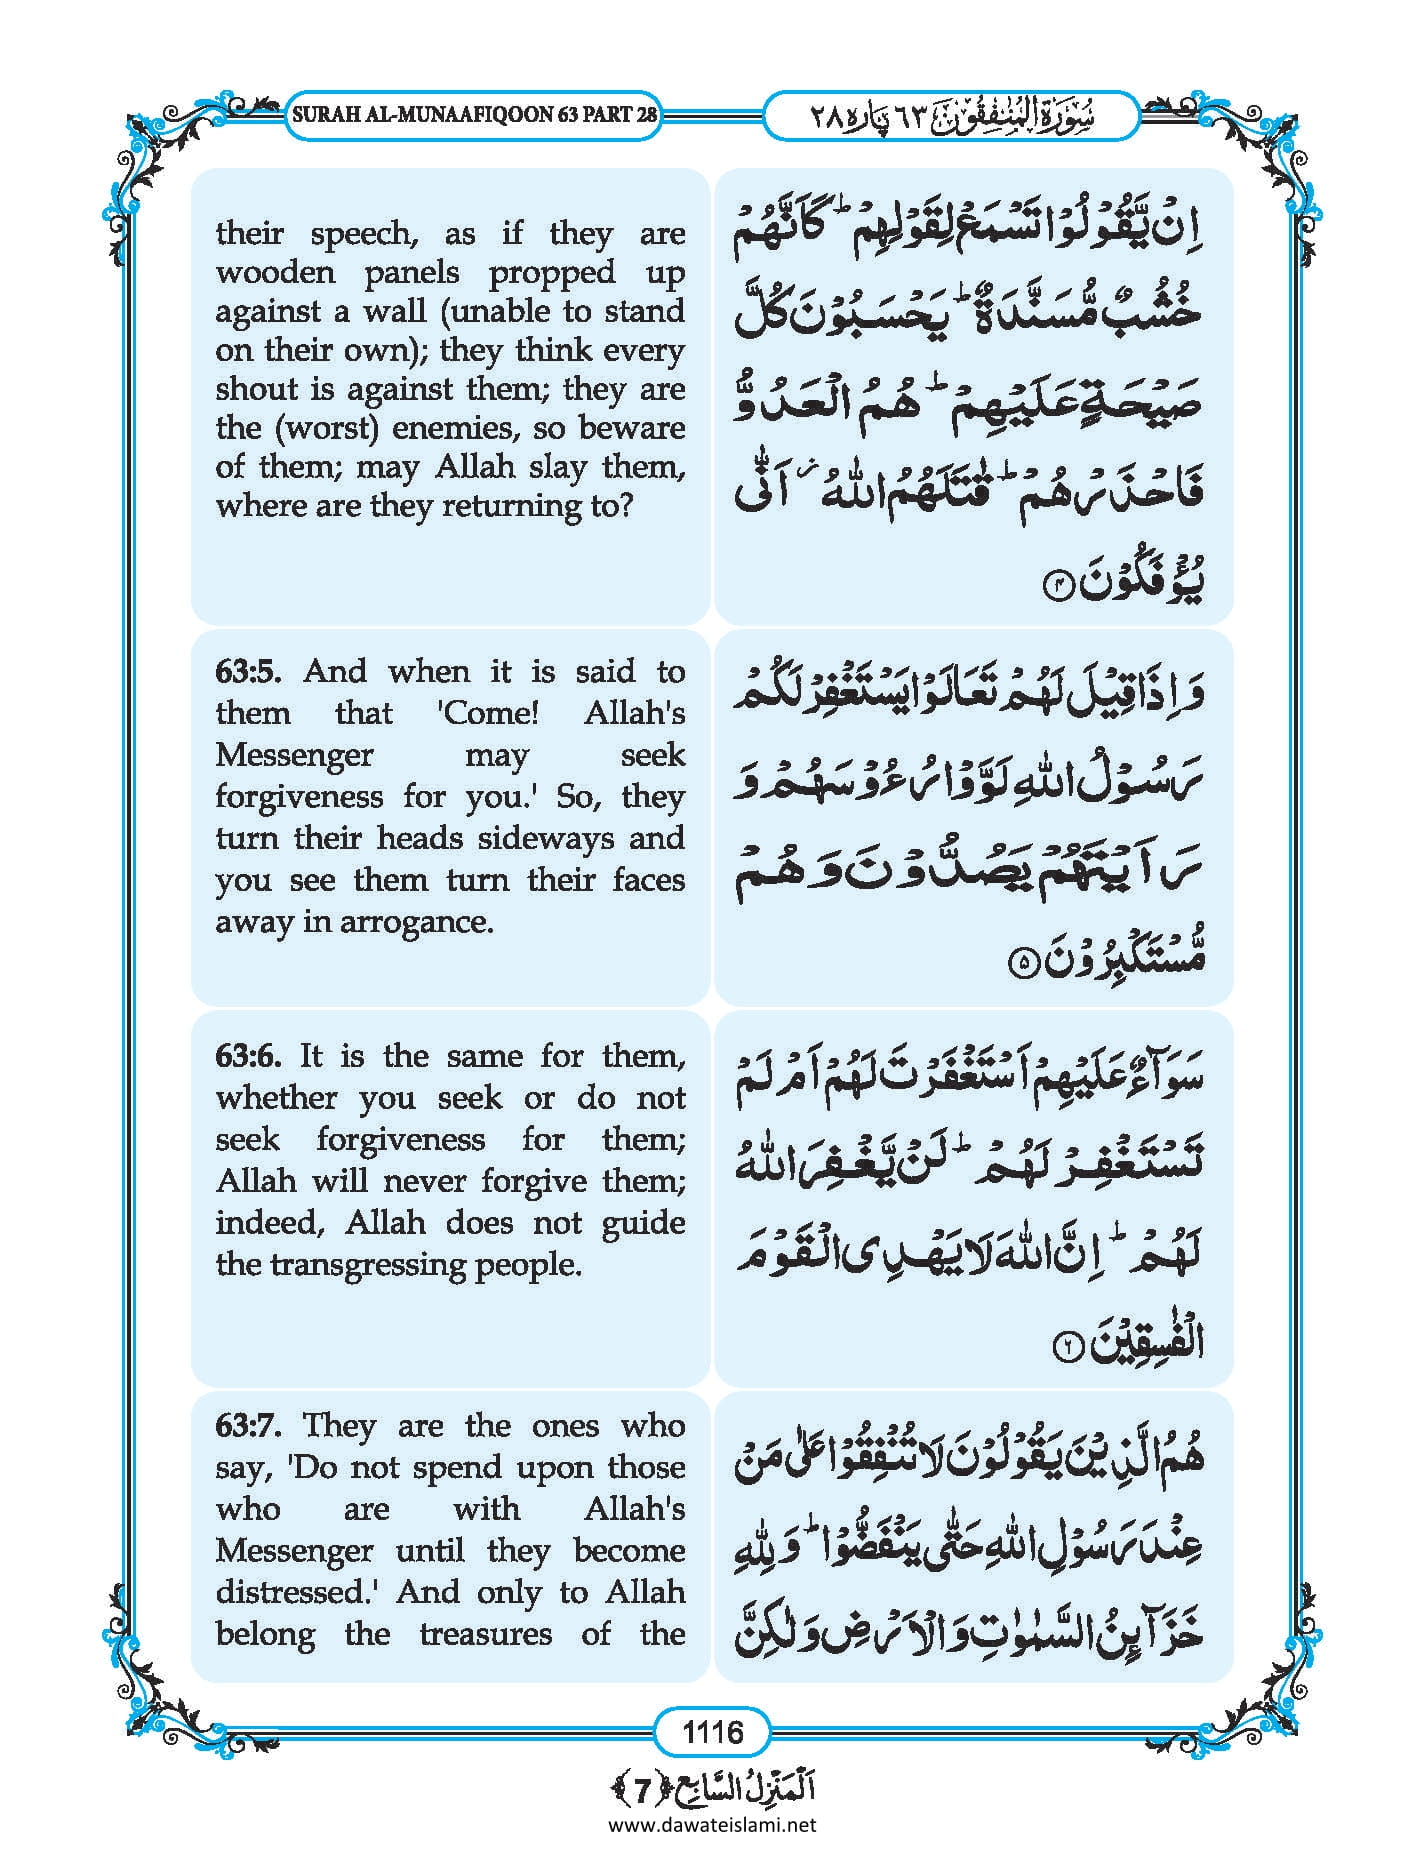 SURAH AL-MUNAAFIQOON 63 PART 28
سُوۡرَةُ الۡمُنٰفِقُوۡنَ ٦٣ پاره ٢٨
their speech, as if they are
wooden panels propped up
against a wall (unable to stand
on their own); they think every
shout is against them; they are
the (worst) enemies, so beware
of them; may Allah slay them,
where are they returning to?
اِنۡ يَّقُوۡلُوۡا تَسۡمَعۡ لِقَوۡلِهِمۡ ؕ كَاَنَّهُمۡ
خُشُبٌ مُّسَنَّدَةٌ ؕ يَحۡسَبُوۡنَ كُلَّ
صَيۡحَةٍ عَلَيۡهِمۡ ؕ هُمُ الۡعَدُوُّ
فَاحۡذَرۡهُمۡ ؕ قٰتَلَهُمُ اللّٰهُ ۫ اَنّٰى
يُؤۡفَكُوۡنَ ۴
63:5. And when it is said to
them that 'Come! Allah's
Messenger may seek
forgiveness for you.' So, they
turn their heads sideways and
you see them turn their faces
away in arrogance.
وَاِذَا قِيۡلَ لَهُمۡ تَعَالَوۡا يَسۡتَغۡفِرۡ لَكُمۡ
رَسُوۡلُ اللّٰهِ لَوَّوۡا رُءُوۡسَهُمۡ وَ
رَاَيۡتَهُمۡ يَصُدُّوۡنَ وَهُمۡ
مُّسۡتَكۡبِرُوۡنَ ۵
63:6. It is the same for them,
whether you seek or do not
seek forgiveness for them;
Allah will never forgive them;
indeed, Allah does not guide
the transgressing people.
سَوَآءٌ عَلَيۡهِمۡ اَسۡتَغۡفَرۡتَ لَهُمۡ اَمۡ لَمۡ
تَسۡتَغۡفِرۡ لَهُمۡ ؕ لَنۡ يَّغۡفِرَ اللّٰهُ
لَهُمۡ ؕ اِنَّ اللّٰهَ لَا يَهۡدِى الۡقَوۡمَ
الۡفٰسِقِيۡنَ ۶
63:7. They are the ones who
say, 'Do not spend upon those
who are with Allah's
Messenger until they become
distressed.' And only to Allah
belong the treasures of the
هُمُ الَّذِيۡنَ يَقُوۡلُوۡنَ لَا تُنۡفِقُوۡا عَلٰى مَنۡ
عِنۡدَ رَسُوۡلِ اللّٰهِ حَتّٰى يَنۡفَضُّوۡا ؕ وَلِلّٰهِ
خَزَآئِنُ السَّمٰوٰتِ وَالۡاَرۡضِ وَلٰكِنَّ
1116
اَلۡمَنۡزِلُ السَّابِعُ ﴿7﴾
www.dawateislami.net